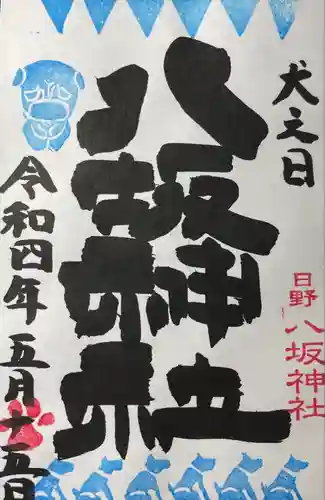 犬之日
日野
八坂神社
八坂神社
令和四年五月十五日